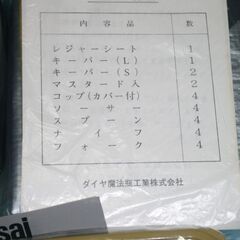 内容品 数
レジャーシート 1
キーパー(L) 1
キーパー(S) 2
マスタード入 2
コップ(カバー付) 4
ソーサー 4
スプーン 4
ナイフ 4
フォーク 4
ダイヤ魔法瓶工業株式会社
sai